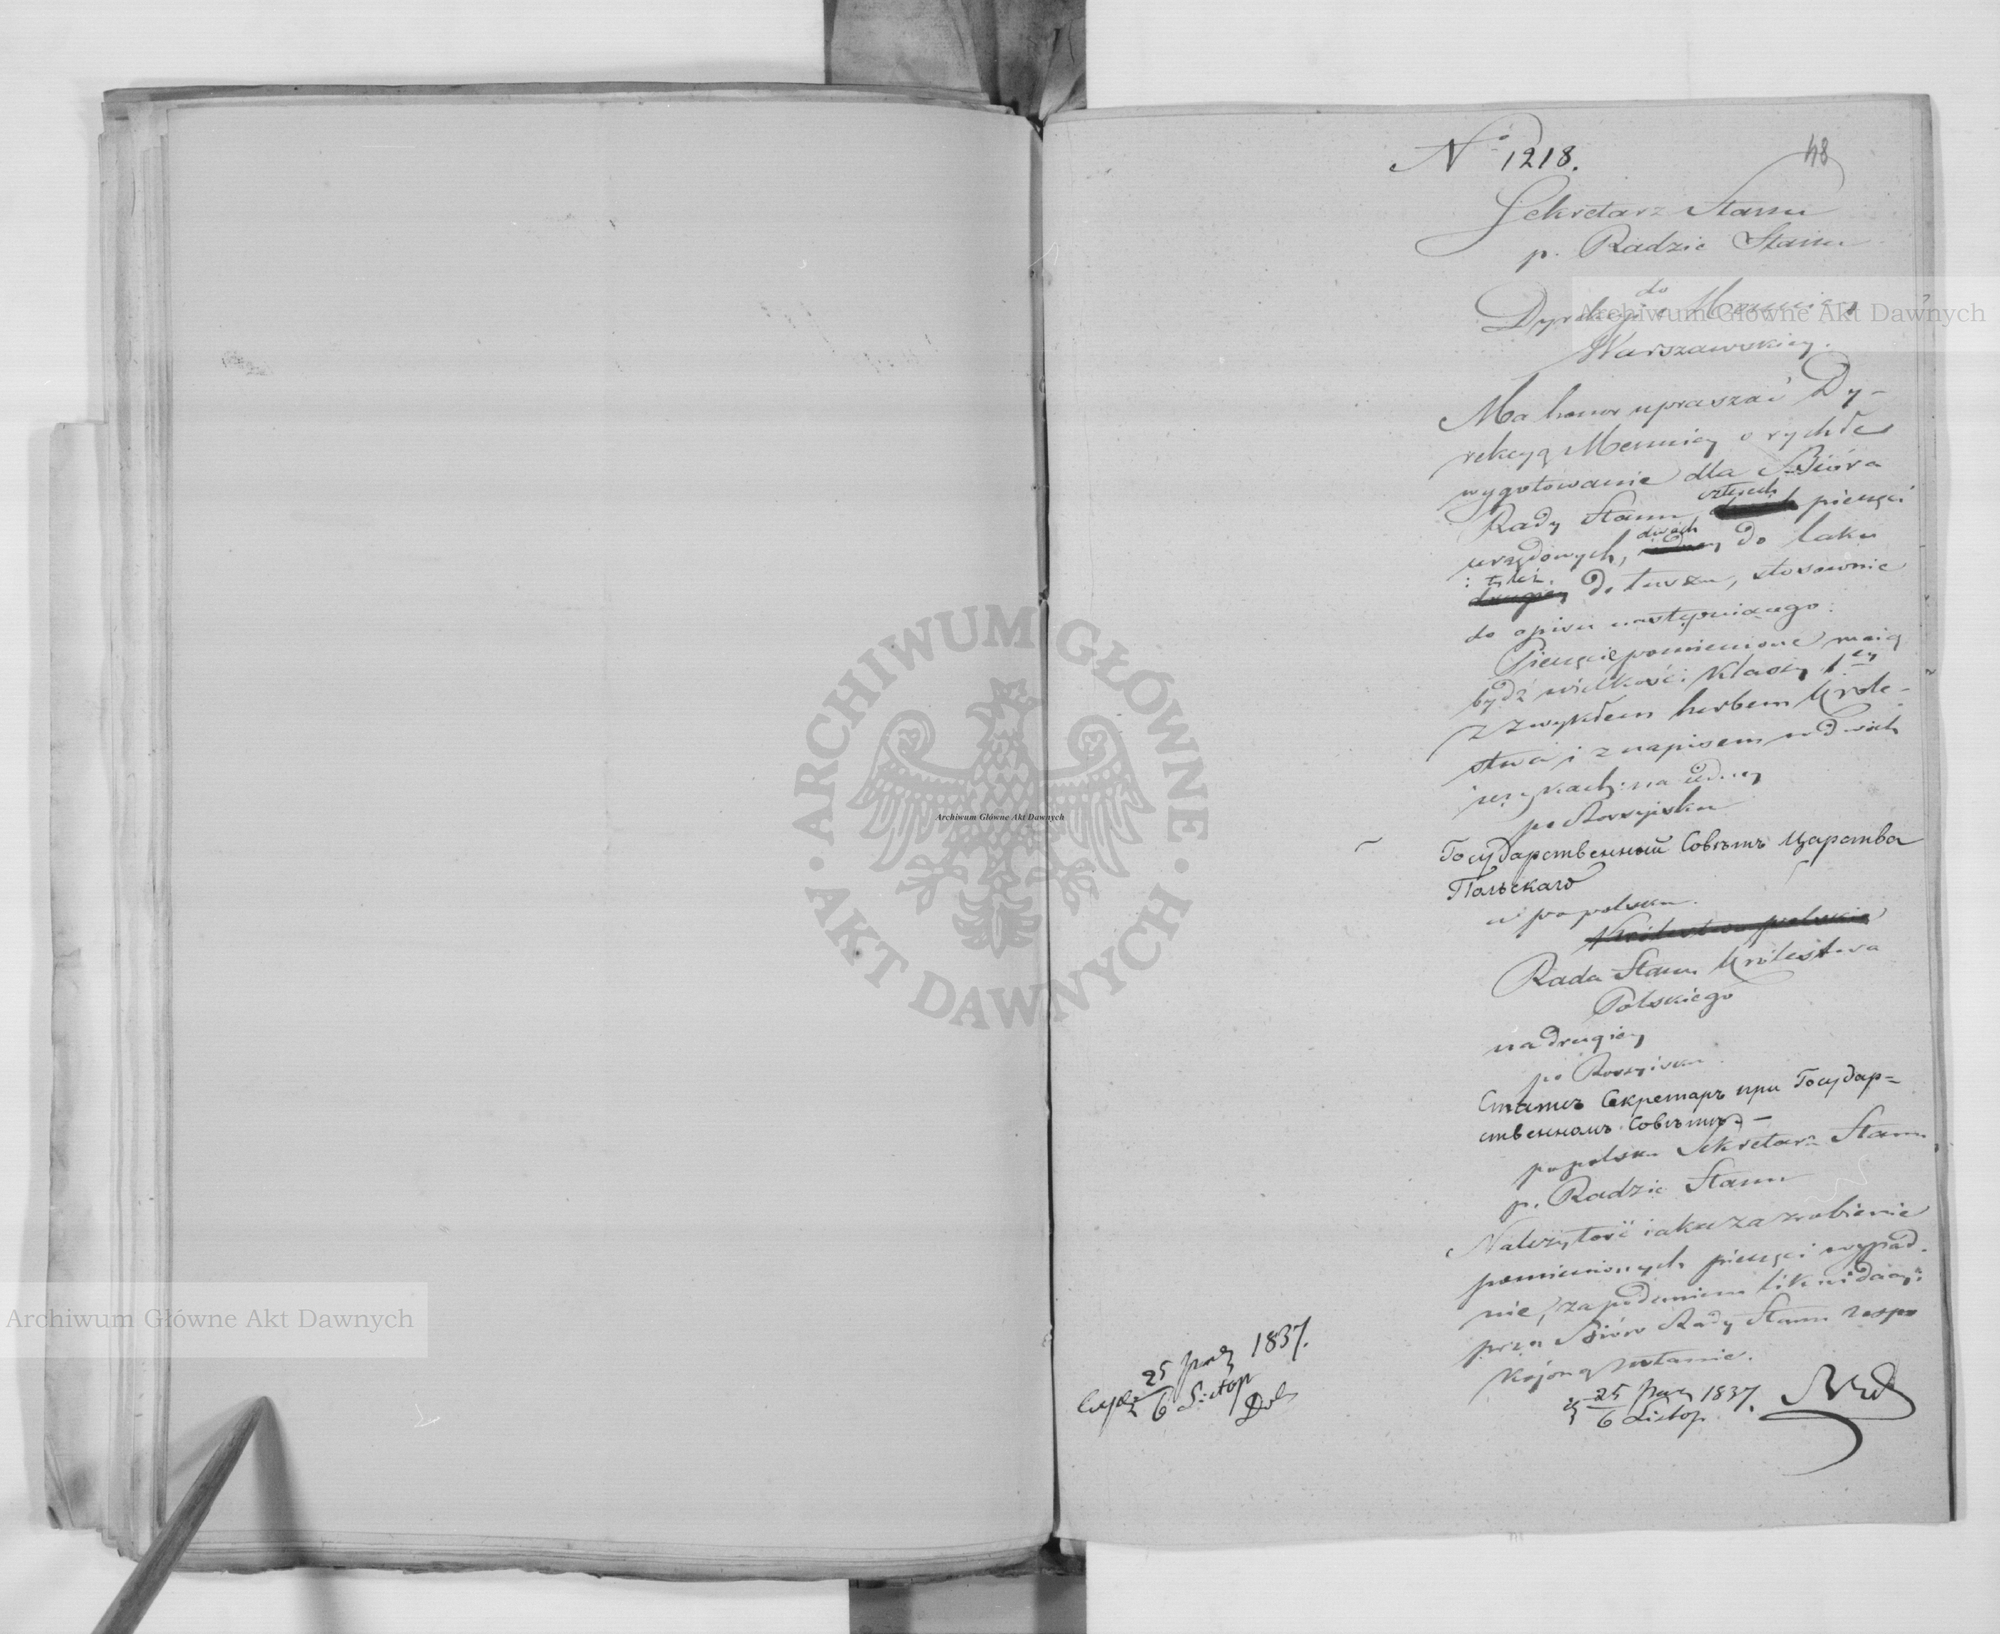 48
No 1218.
Sekretarz Stanu
p. Radzie Stanu
do
Dyrekcyi Mennicy
Warszawskiey.
Ma honor upraszać Dy-
rekcyą Mennicy o rychłe
wygotowanie dla Bióra
Rady Stanu, czterech pieczęci
urzędowych, dwóch do laku
i tyluż do tuszu, stosownie
do opisu następuiącego:
Pieczęcie pomienione maią
bydź wielkości klassy 1ey
z zwykłem herbem Króle-
stwa i z napisem w dwóch
ięzykach: na iedney
po Rossyisku
Государственный Совѣтъ Царства
Польскаго
a po polsku.
Królestwo polskie
Rada Stanu Królestwa
Polskiego
na drugiey
po Rossyisku
Статсъ Секретарь при Государ-
ственномъ Совѣтѣ –
po polsku Sekretarz Stanu
p. Radzie Stanu
Należytość iaka za zrobienie
pomienionych pieczęci wypad-
nie, za podaniem likwidacyi
przez Bióro Rady Stanu zaspo
koioną zostanie.
25 Paź 1837.
6 Listop
25 Paź 1837.
6 Listop
Archiwum Główne Akt Dawnych
Archiwum Główne Akt Dawnych
Archiwum Główne Akt Dawnych
ARCHIWUM GŁÓWNE
AKT DAWNYCH